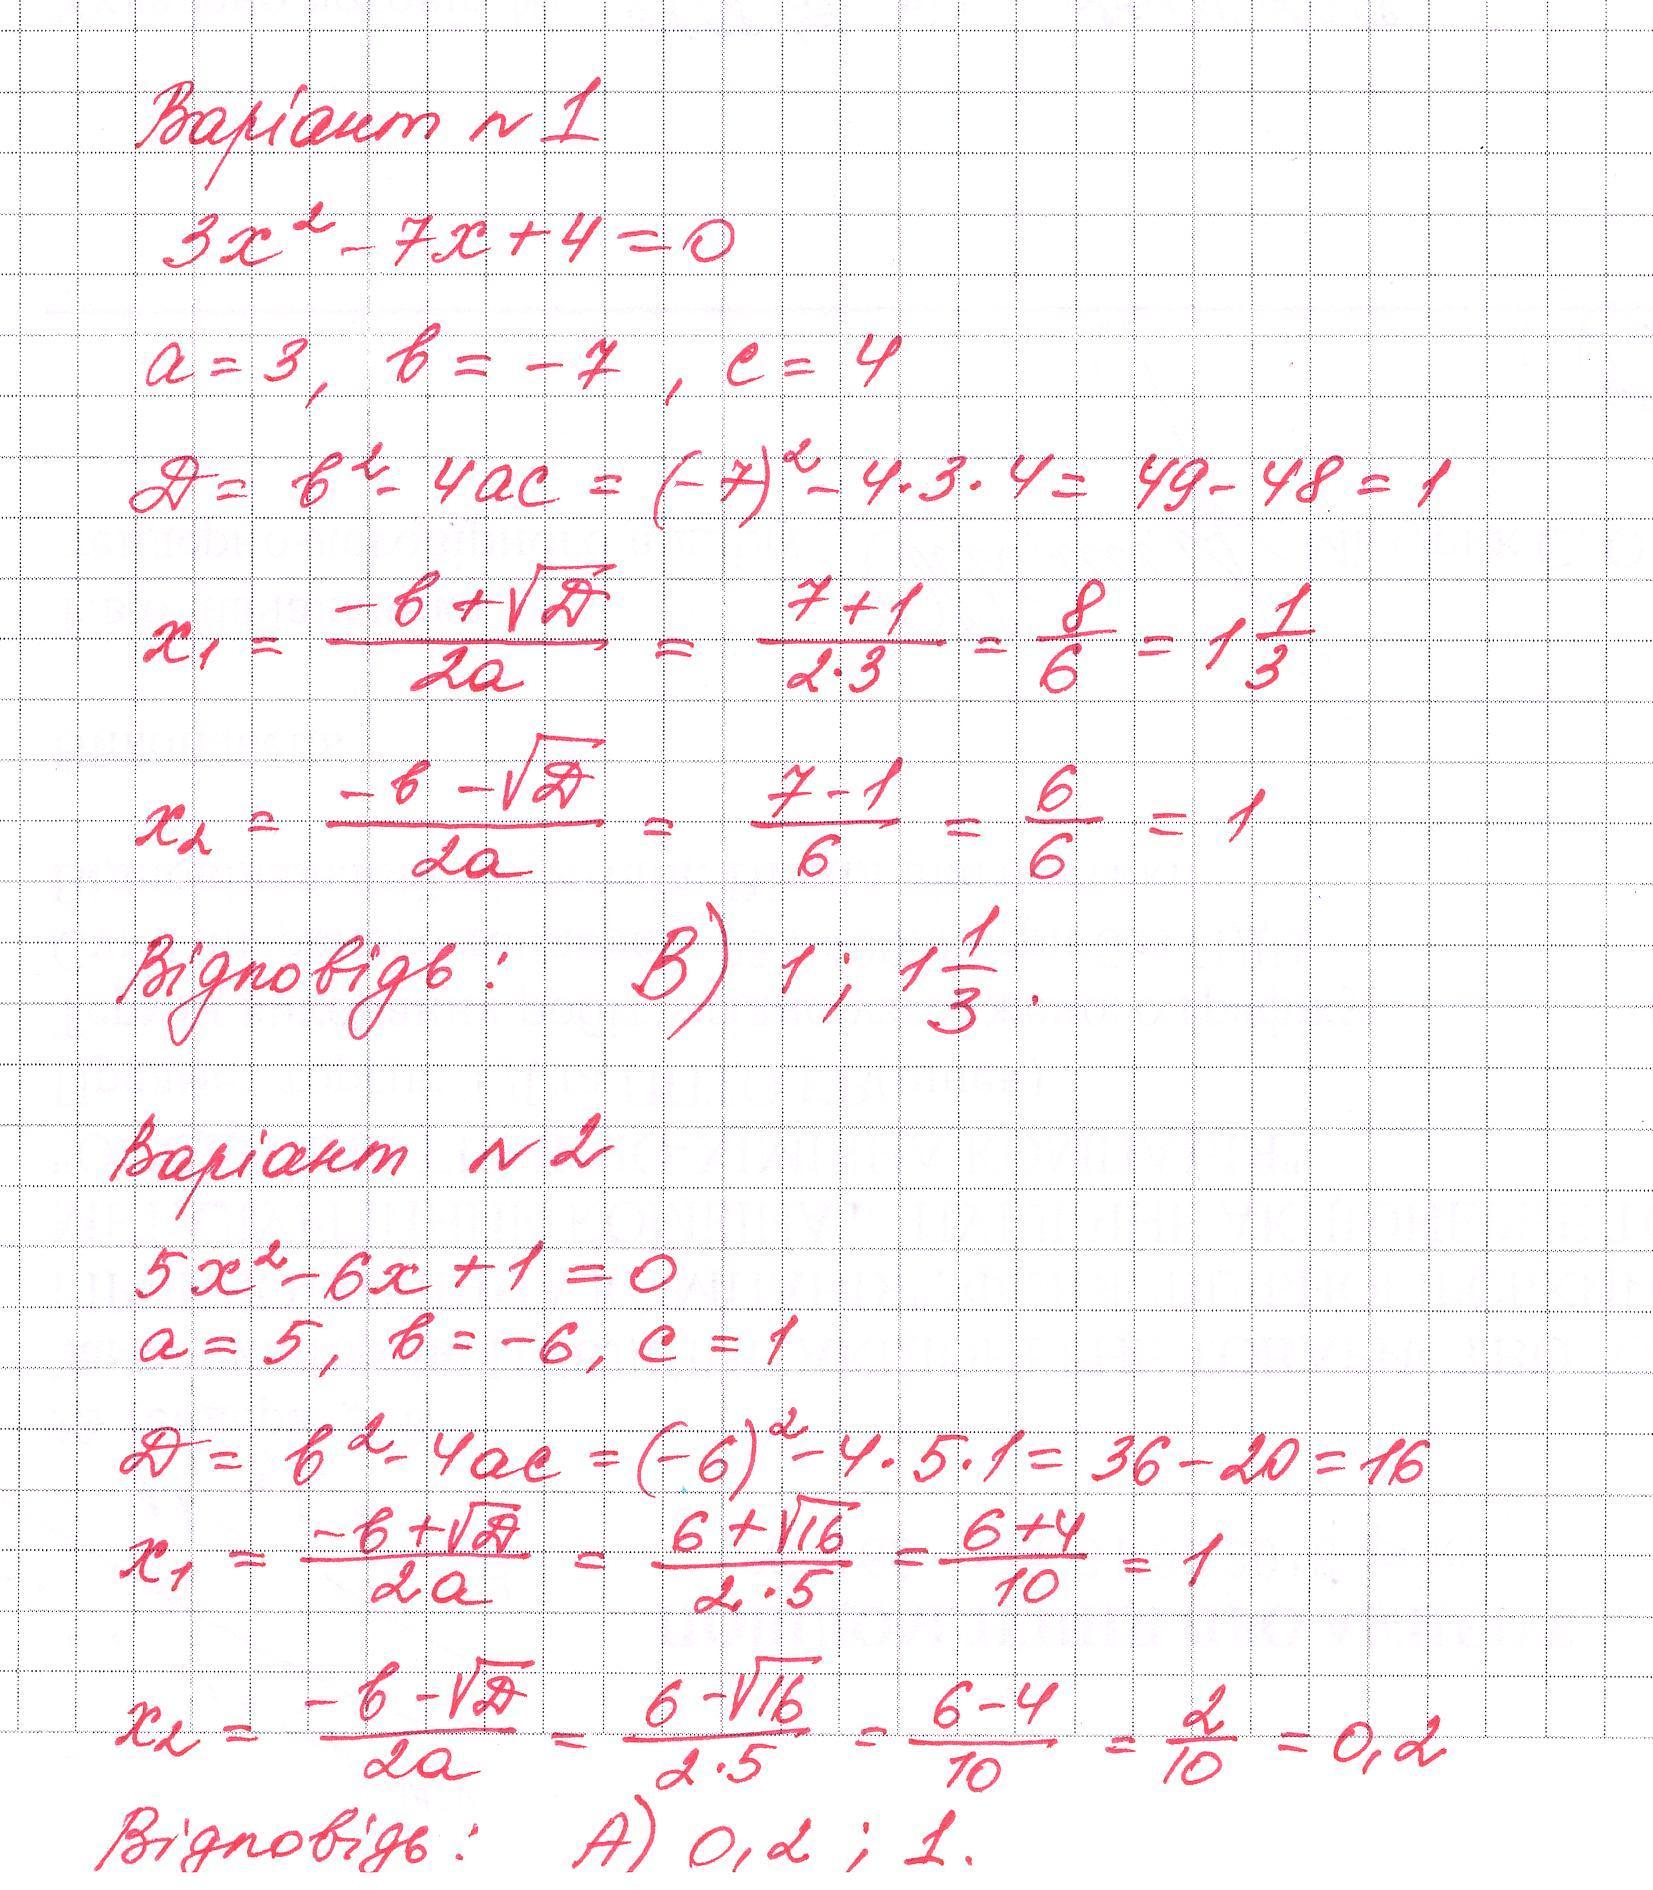 Варіант № 1
3x² - 7x + 4 = 0
a = 3, b = -7, c = 4
D = b² - 4ac = (-7)² - 4·3·4 = 49 - 48 = 1
x₁ = (-b + √D)/(2a) = (7 + 1)/(2·3) = 8/6 = 1 1/3
x₂ = (-b - √D)/(2a) = (7 - 1)/6 = 6/6 = 1
Відповідь: В) 1; 1 1/3.
Варіант № 2
5x² - 6x + 1 = 0
a = 5, b = -6, c = 1
D = b² - 4ac = (-6)² - 4·5·1 = 36 - 20 = 16
x₁ = (-b + √D)/(2a) = (6 + √16)/(2·5) = (6 + 4)/10 = 1
x₂ = (-b - √D)/(2a) = (6 - √16)/(2·5) = (6 - 4)/10 = 2/10 = 0,2
Відповідь: А) 0,2; 1.